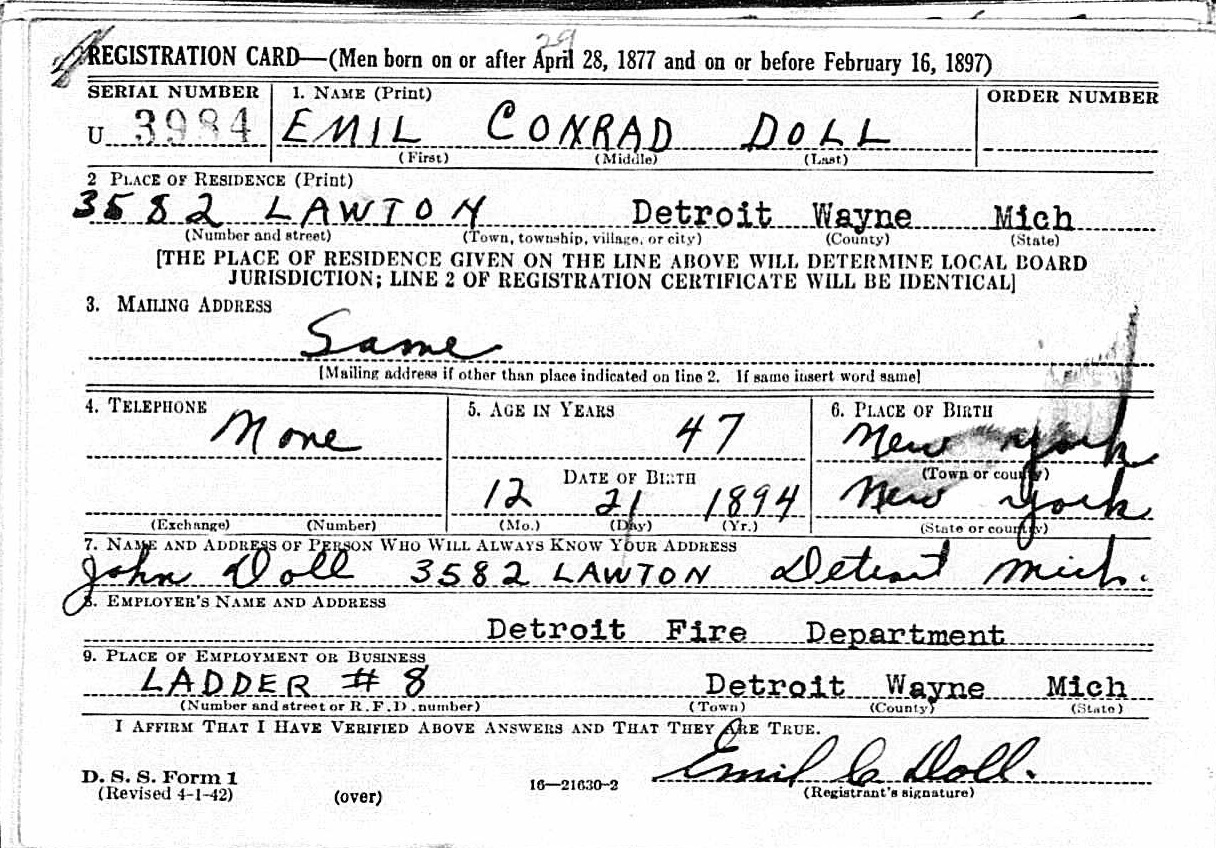 29
REGISTRATION CARD—(Men born on or after April 28, 1877 and on or before February 16, 1897)
SERIAL NUMBER 1. NAME (Print) ORDER NUMBER
U 3984 EMIL CONRAD DOLL
(First) (Middle) (Last)
2 PLACE OF RESIDENCE (Print)
3582 LAWTON Detroit Wayne Mich
(Number and street) (Town, township, village, or city) (County) (State)
[THE PLACE OF RESIDENCE GIVEN ON THE LINE ABOVE WILL DETERMINE LOCAL BOARD
JURISDICTION; LINE 2 OF REGISTRATION CERTIFICATE WILL BE IDENTICAL]
3. MAILING ADDRESS
Same
[Mailing address if other than place indicated on line 2. If same insert word same]
4. TELEPHONE 5. AGE IN YEARS 6. PLACE OF BIRTH
None 47 New York
DATE OF BIRTH (Town or county)
12 21 1894 New York
(Exchange) (Number) (Mo.) (Day) (Yr.) (State or country)
7. NAME AND ADDRESS OF PERSON WHO WILL ALWAYS KNOW YOUR ADDRESS
John Doll 3582 LAWTON Detroit Mich.
8. EMPLOYER'S NAME AND ADDRESS
Detroit Fire Department
9. PLACE OF EMPLOYMENT OR BUSINESS
LADDER # 8 Detroit Wayne Mich
(Number and street or R. F. D. number) (Town) (County) (State)
I AFFIRM THAT I HAVE VERIFIED ABOVE ANSWERS AND THAT THEY ARE TRUE.
Emil C Doll.
D. S. S. Form 1
(Revised 4-1-42) (over) 16—21630-2 (Registrant's signature)